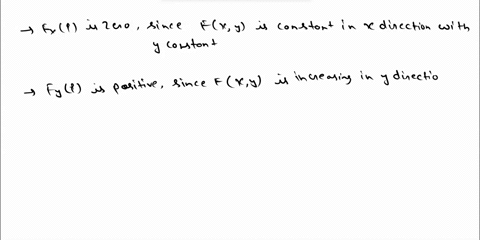 → Fx(P) is zero, since F(x,y) is constant in x direction with
y constant
→ Fy(P) is positive, since F(x,y) is increasing in y directio